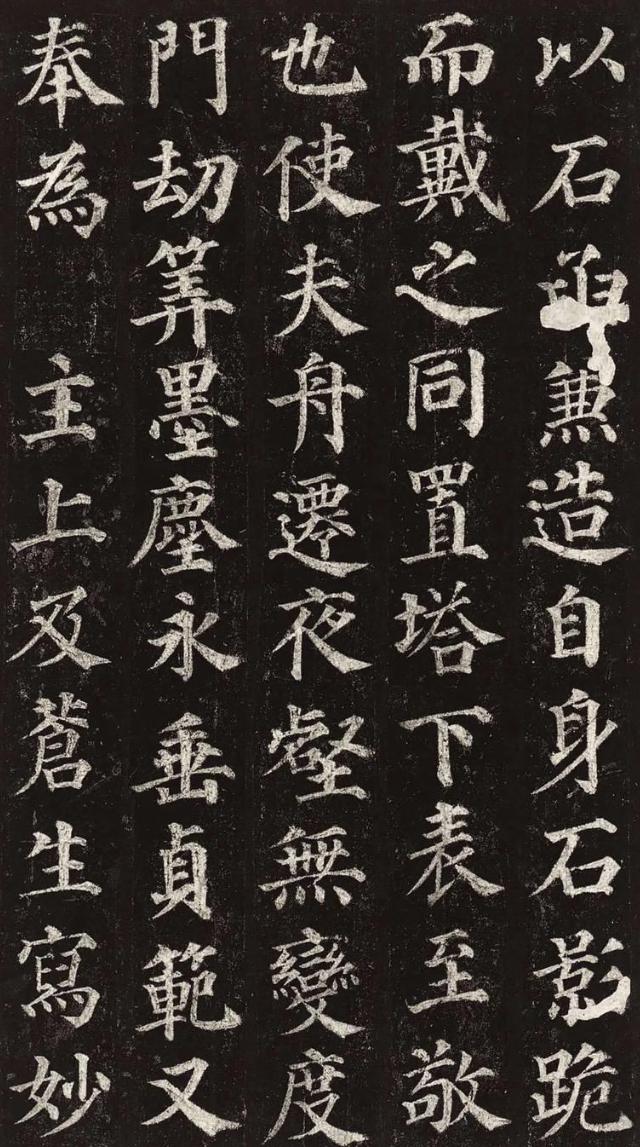 以石函兼造自身石影跪
而戴之同置塔下表至敬
也使夫舟遷夜壑無變度
門刼筭墨塵永垂貞範又
奉為 主上及蒼生寫妙